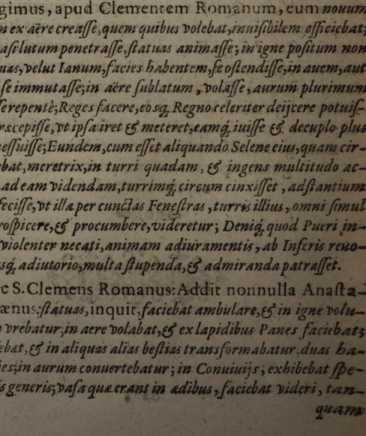 gimus, apud Clementem Romanum, eum nouum
m ex aëre creasse, quem quibus volebat, inuisibilem efficiebat;
a solutum penetrasse, statuas animasse; in igne positum non
uas, velut Ianum, facies habentem, se ostendisse, in auem, aut
se immutasse; in aëre sublatum, volasse, aurum plurimum
se repentè; Reges facere, eosq́; Regno celeriter deijcere potuis-
ræcepisse, vt ipsa iret & meteret, eamq́; iuisse & decuplo plus
essuisse; Eundem, cum esset aliquando Selene eius, quam cir-
bat, meretrix, in turri quadam, & ingens multitudo ac-
ad eam videndam, turrimq́; circum cinxisset, adstantium
fecisse, vt illa per cunctas Fenestras, turris illius, omni simul
rospicere, & procumbere, videretur; Deniq́; quod Pueri in-
violenter necati, animam adiuramentis, ab Inferis reuo-
sq́; adiutorio, multa stupenda, & admiranda patrasset.
c S. Clemens Romanus: Addit nonnulla Anasta-
ænus: statuas, inquit, faciebat ambulare, & in igne volu-
vrebatur, in aere volabat, & ex lapidibus Panes faciebat;
ebat, & in aliquas alias bestias transformabatur, duas ha-
ies; in aurum conuertebatur; in Conuiuijs, exhibebat spe-
is generis; vasa quæ erant in ædibus, faciebat videri, tan-
quam